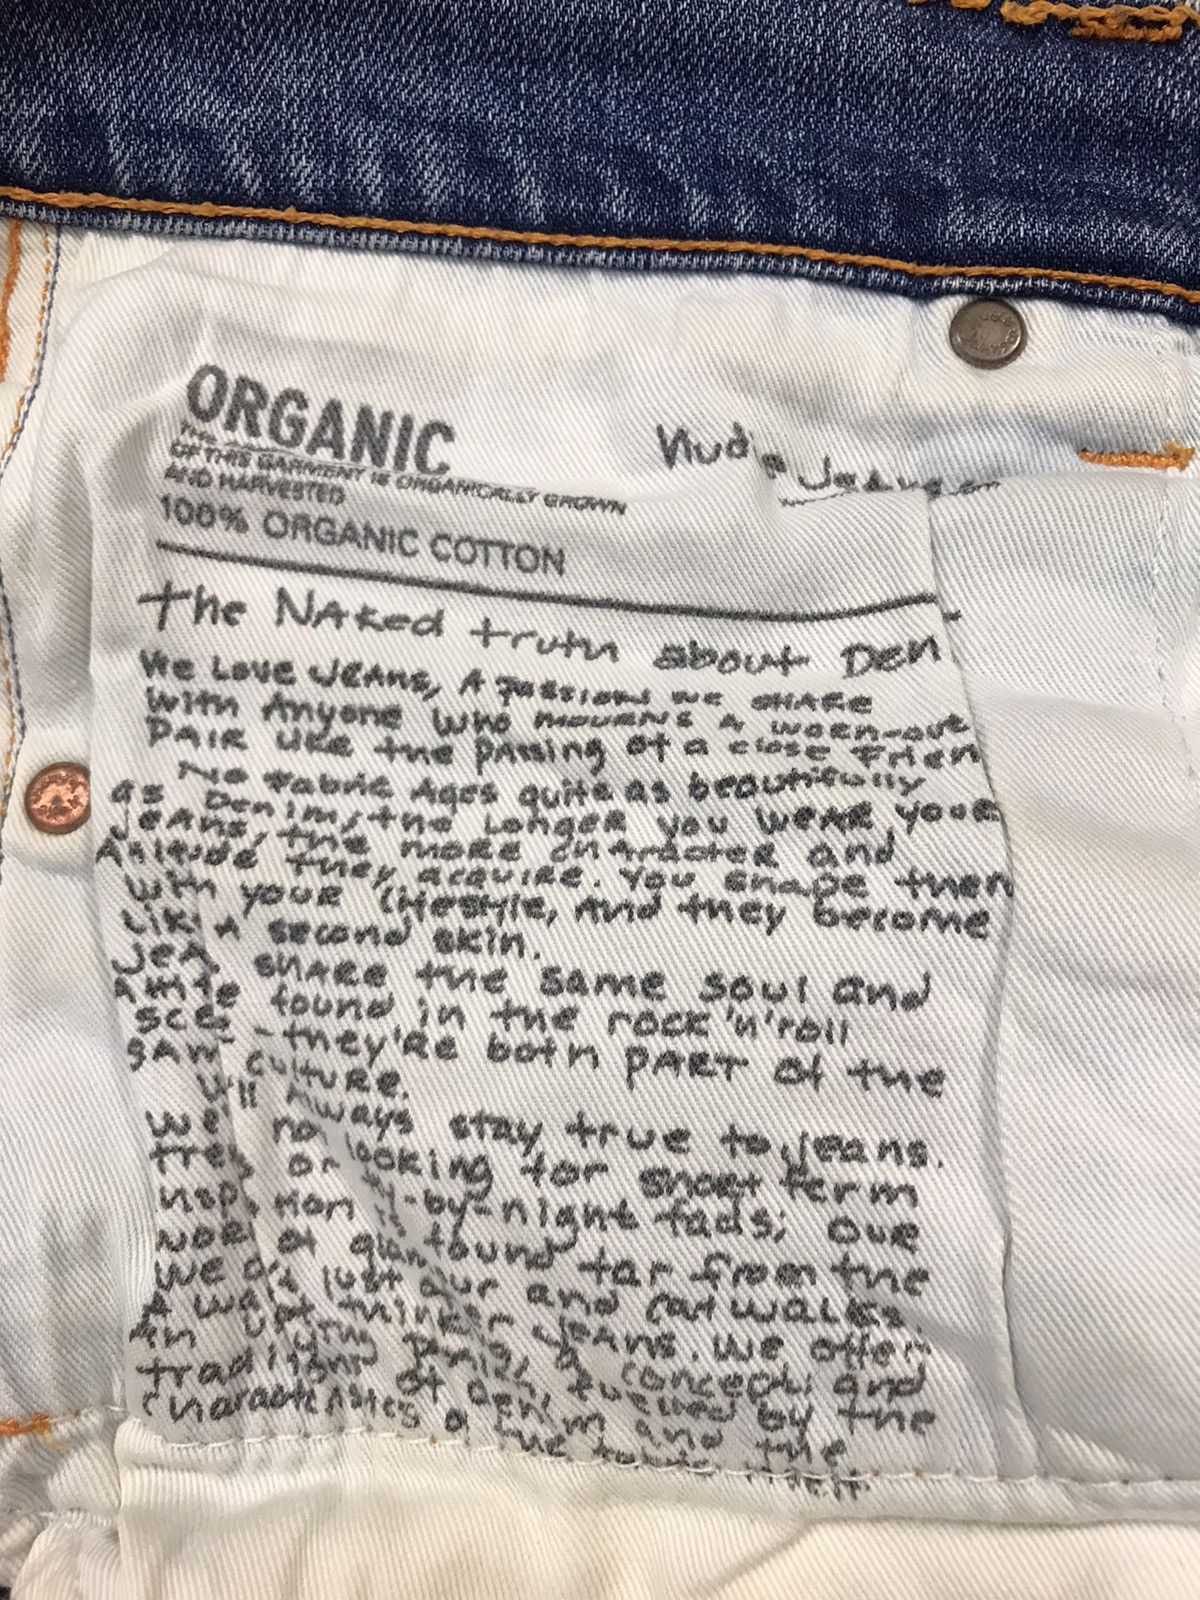 ORGANIC
THE
OF THIS GARMENT IS ORGANICALLY GROWN
AND HARVESTED
100% ORGANIC COTTON
Nudie Jeans
the NAked truth about DEN
WE LOVE JEANS, A PASSION WE SHARE
with Anyone who MOURNS A WORN-out
PAIR LIKE the PAssing of a close Frien
No Fabric Ages quite as beautifully
as Denim, the Longer you WEAR your
JEANS, the MORE CHARACTER and
Attitude they acquire. You shape them
with your lifestyle, And they become
Lik A second skin.
JeA SHARE the same soul and
found in the rock 'n' roll
sce - they're both PART of the
SAM CULTURE.
We'll Always stay true to jeans.
We no looking for short term
tre or -by-night fads; OUR
nsp tion found far from the
wor of glam our and catwalks
We just JEANS. We offer
A way of thinking, a concept; and
An by the
tradition of denim and the
characteristics o the itself